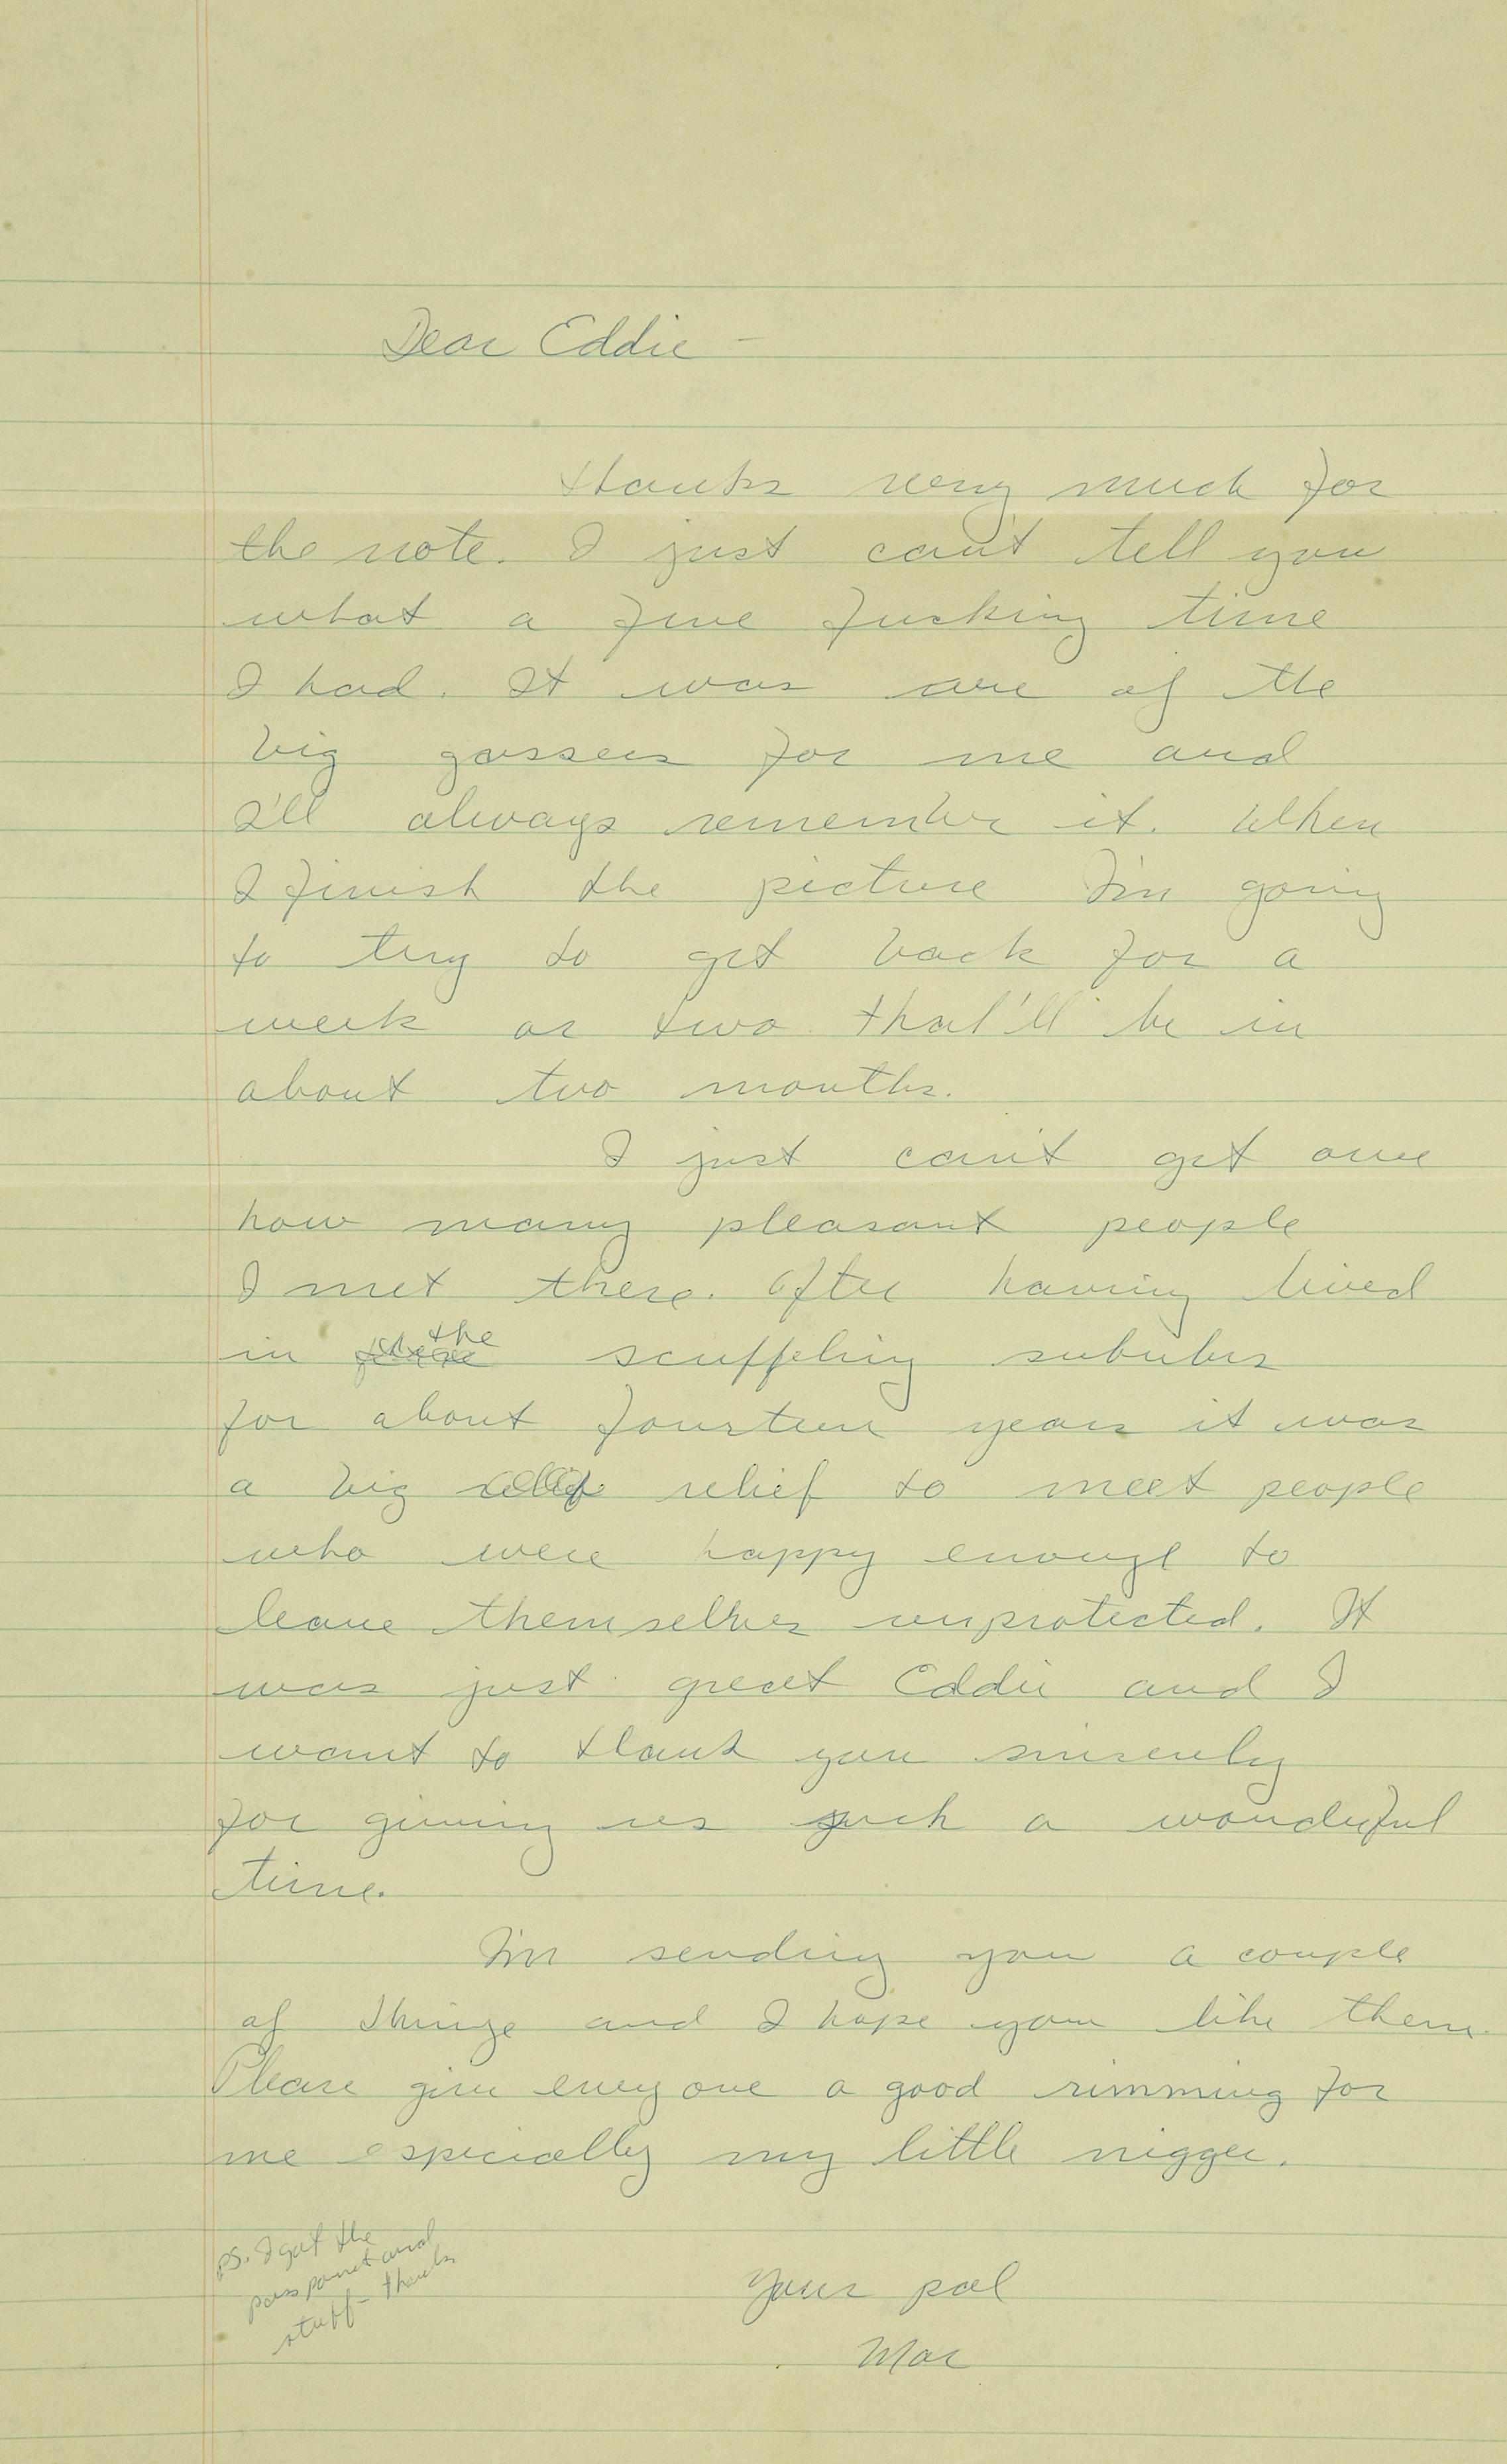 Dear Eddie —
Thanks very much for
the note. I just can't tell you
what a fine fucking time
I had. It was one of the
big gassers for me and
I'll always remember it. When
I finish the picture I'm going
to try to get back for a
week or two. that'll be in
about two months.
I just can't get over
how many pleasant people
I met there. After having lived
in the scuffling suburbs
for about fourteen years it was
a big relief to meet people
who were happy enough to
leave themselves unprotected. It
was just great Eddie and I
want to thank you sincerely
for giving us such a wonderful
time.
I'm sending you a couple
of things and I hope you like them.
Please give everyone a good rimming for
me especially my little nigger.
ps. I got the
passport and
stuff - thanks
Your pal
Mar